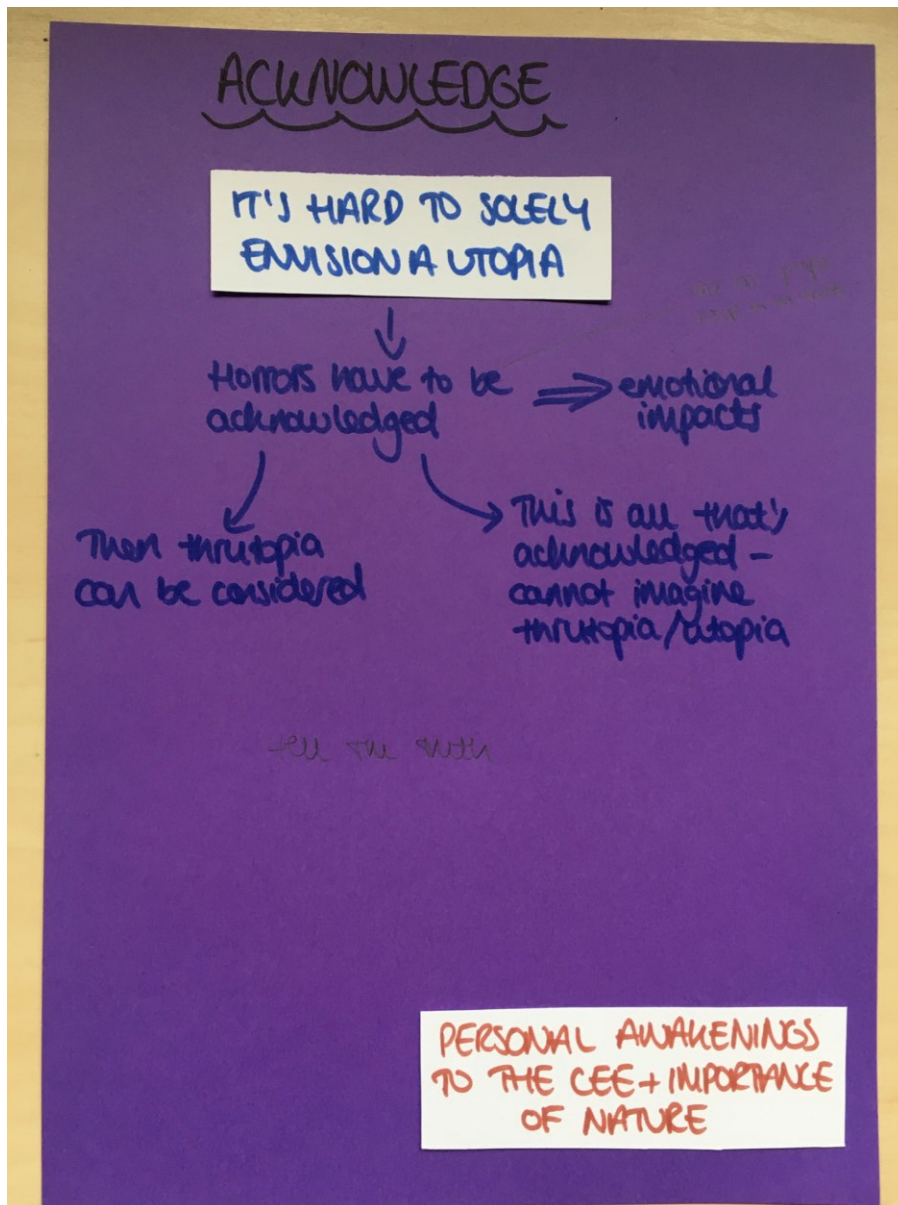 ACKNOWLEDGE
IT'S HARD TO SOLELY
ENVISION A UTOPIA
Horrors have to be
acknowledged
emotional
impacts
Then thrutopia
can be considered
This is all that's
acknowledged -
cannot imagine
thrutopia/utopia
tell the truth
PERSONAL AWAKENINGS
TO THE CEE + IMPORTANCE
OF NATURE